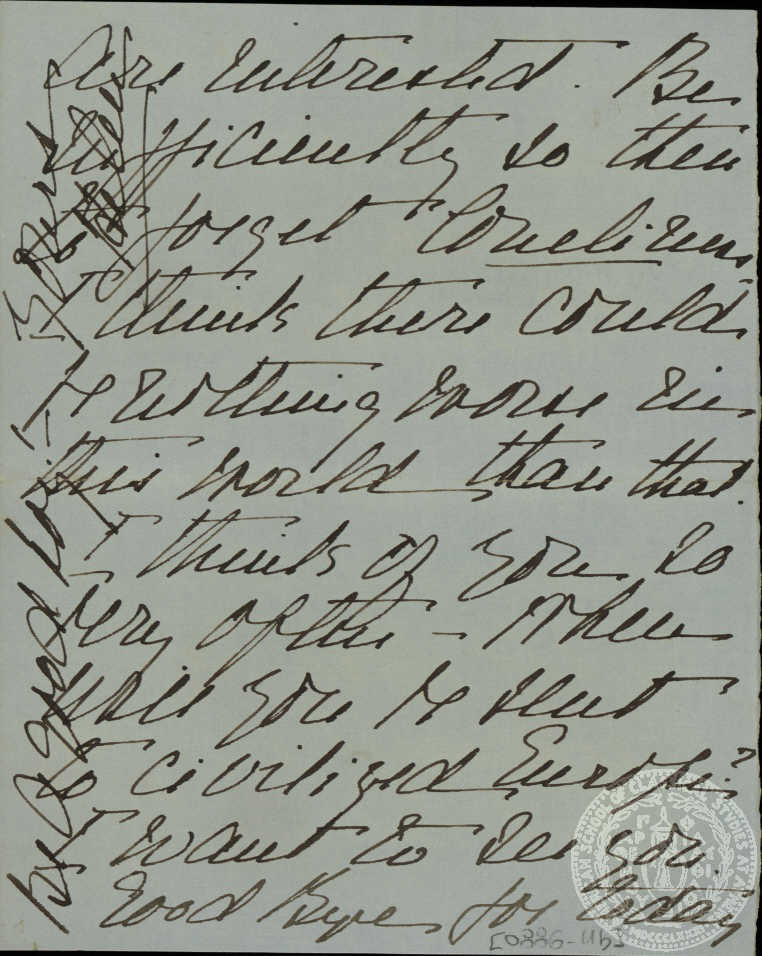 are interested. Be
sufficiently so then
to forget loneliness
I think there could
be nothing worse in
this world than that.
I think of you so
very often – When
will you be sent
to civilized Europe?
I want to see you.
Good Bye for today